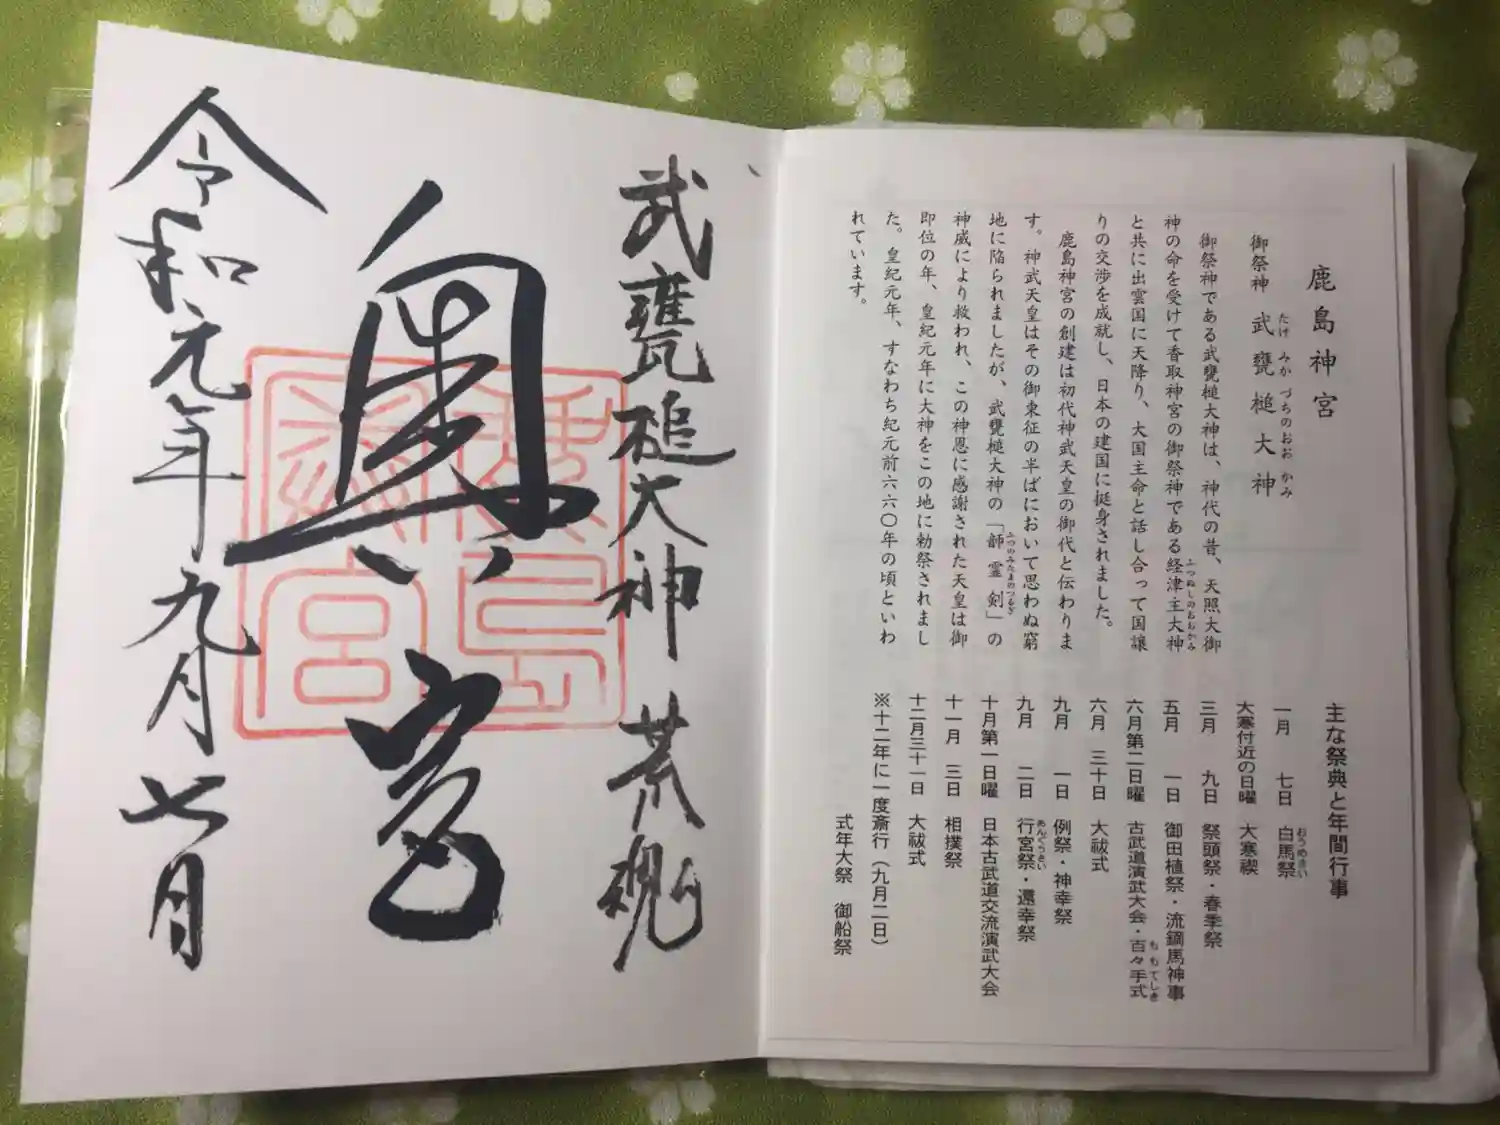 鹿島神宮
御祭神 武甕槌大神
たけ みか づちのおお かみ
御祭神である武甕槌大神は、神代の昔、天照大御
神の命を受けて香取神宮の御祭神である経津主大神
ふつぬしのおおかみ
と共に出雲国に天降り、大国主命と話し合って国譲
りの交渉を成就し、日本の建国に挺身されました。
鹿島神宮の創建は初代神武天皇の御代と伝わりま
す。神武天皇はその御東征の半ばにおいて思わぬ窮
地に陥られましたが、武甕槌大神の「韴霊剣」の
ふつのみたまのつるぎ
神威により救われ、この神恩に感謝された天皇は御
即位の年、皇紀元年に大神をこの地に勅祭されまし
た。皇紀元年、すなわち紀元前六六〇年の頃といわ
れています。
主な祭典と年間行事
一月 七日 白馬祭
おうめさい
大寒付近の日曜 大寒禊
三月 九日 祭頭祭・春季祭
五月 一日 御田植祭・流鏑馬神事
六月第二日曜 古武道演武大会・百々手式
ももてしき
六月 三十日 大祓式
九月 一日 例祭・神幸祭
九月 二日 行宮祭・還幸祭
あんぐうさい
十月第一日曜 日本古武道交流演武大会
十一月 三日 相撲祭
十二月三十一日 大祓式
※十二年に一度斎行（九月二日）
式年大祭 御船祭
武甕槌大神 荒魂
奥宮
鹿島神宮
令和元年九月七日